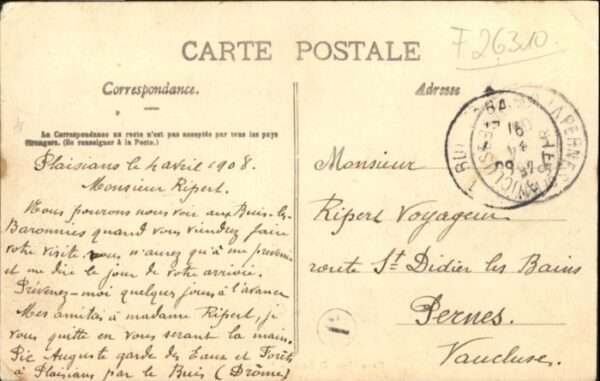 F 26310
CARTE POSTALE
Correspondance.
Adresse
La Correspondance au recto n'est pas acceptée par tous les pays
étrangers. (Se renseigner à la Poste.)
Plaisians le 4 avril 1908.
Monsieur Ripert.
Nous pourons nous voir aux Buis-les
Baronnies quand vous viendrez faire
votre visite vous n'aurez qu'à me prévenir
et me dire le jour de votre arrivée.
Prévenez-moi quelques jours à l'avance
Mes amitiés à madame Ripert, je
vous quitte en vous serant la main.
Pic Auguste garde des Eaux et Forêts
à Plaisians par le Buis (Drôme)
Monsieur
Ripert Voyageur
route St Didier les Bains
Pernes.
Vaucluse.